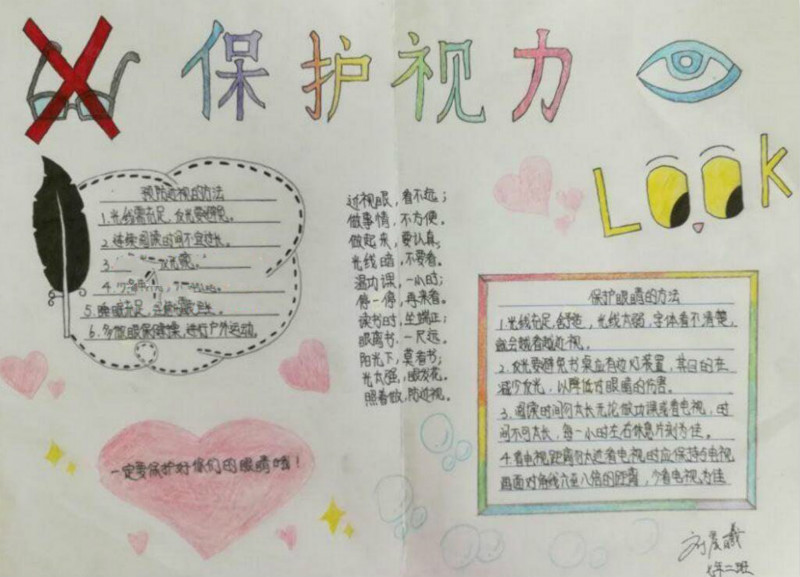 保护视力
LOOK
预防近视的方法
1.光线需充足,反光要避免。
2.连续阅读的时间不宜过长。
3.
4.
5.睡眠充足,
6.多做眼保健操,进行户外运动。
近视眼,看不远;
做事情,不方便。
做起来,要认真,
光线暗,不要看。
温功课,一小时;
停一停,再来看。
读书时,坐端正;
眼离书,一尺远。
阳光下,莫看书;
光太强,眼发花。
照着做,防近视。
保护眼睛的方法
1.光线充足,舒适,光线太弱,字体看不清楚,
就会越看越近视。
2.反光要避免书桌应有边灯装置,其目的在
减少反光,以降低对眼睛的伤害。
3.阅读时间勿太长无论做功课或看电视,时
间不可太长,每一小时左右休息片刻为佳。
4.看电视距离勿太近看电视时应保持与电视
画面对角线六至八倍的距离,少看电视为佳
一定要保护好你们的眼睛哦!